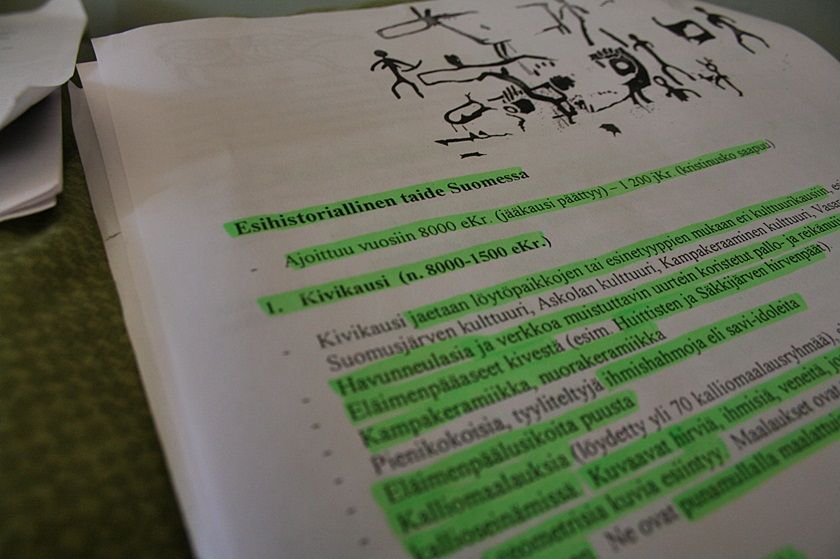 Esihistoriallinen taide Suomessa
- Ajoittuu vuosiin 8000 eKr. (jääkausi päättyy) – 1 200 jKr. (kristinusko saapuu)
1. Kivikausi (n. 8000-1500 eKr.)
- Kivikausi jaetaan löytöpaikkojen tai esinetyyppien mukaan eri kulttuurikausiin,
Suomusjärven kulttuuri, Askolan kulttuuri, Kampakeraaminen kulttuuri,
- Havunneulasia ja verkkoa muistuttavin uurtein koristetut pallo- ja
- Eläimenpääaseet kivestä (esim. Huittisten ja Säkkijärven hirvenpää)
- Kampakeramiikka, nuorakeramiikka
- Pienikokoisia, tyyliteltyjä ihmishahmoja eli savi-idoleita
- Eläimenpäälusikoita puusta
- Kalliomaalauksia (löydetty yli 70 kalliomaalausryhmää),
kallioseinämissä. Kuvaavat hirviä, ihmisiä, veneitä,
geometrisia kuvia esiintyy. Maalaukset
Ne ovat punamullalla